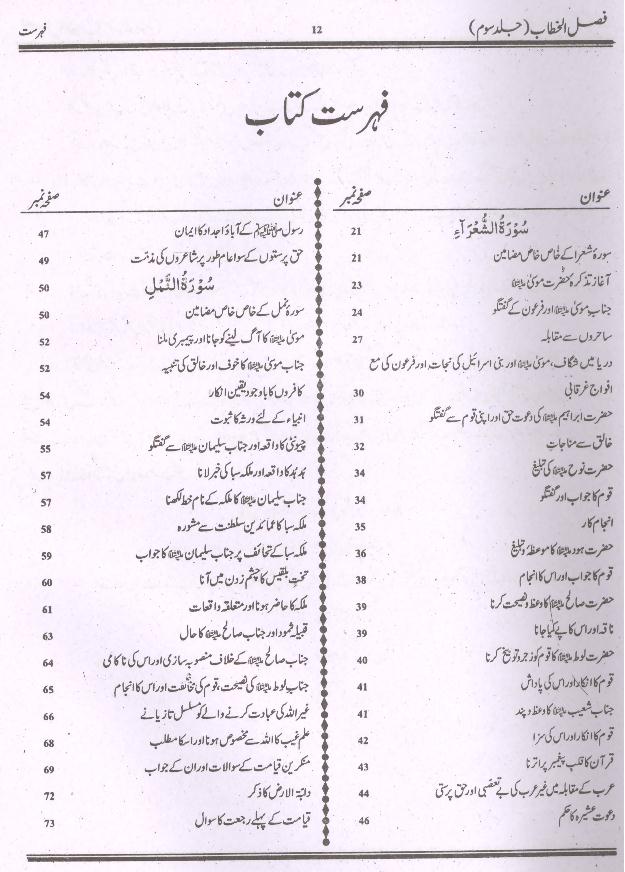 فصل الخطاب (جلد سوم)
12
فہرست
فہرست کتاب
عنوان صفحہ نمبر
سُوْرَۃُ الشُّعَرَآءِ 21
سورۂ شعرا کے خاص خاص مضامین 21
آغاز تذکرہ حضرت موسیٰؑ 23
جناب موسیٰؑ اور فرعون کے گفتگو 24
ساحروں سے مقابلہ 27
دریا میں شگاف، موسیٰؑ اور بنی اسرائیل کی نجات، اور فرعون کی مع
افواج غرقابی 30
حضرت ابراہیمؑ کی دعوت حق اور اپنی قوم سے گفتگو 31
خالق سے مناجات 32
حضرت نوحؑ کی تبلیغ 34
قوم کا جواب اور گفتگو 34
انجام کار 35
حضرت ہودؑ کا موعظہ و تبلیغ 36
قوم کا جواب اور اس کا انجام 38
حضرت صالحؑ کا وعظ و نصیحت کرنا 39
ناقہ اور اس کا پے کیا جانا 39
حضرت لوطؑ کا قوم کو زجر و توبیخ کرنا 40
قوم کا انکار اور اس کی پاداش 41
جناب شعیبؑ کا وعظ و پند 41
قوم کا انکار اور اس کی سزا 42
قرآن کا قلب پیغمبر پر اترنا 43
عرب کے مقابلہ میں غیر عرب کی بے تعصبی اور حق پرستی 44
دعوت عشیرہ کا حکم 46
عنوان صفحہ نمبر
رسول ﷺ کے آباؤ اجداد کا ایمان 47
حق پرستوں کے سوا عام طور پر شاعروں کی مذمت 49
سُوْرَۃُ النَّمْلِ 50
سورۂ نمل کے خاص خاص مضامین 50
موسیٰؑ کا آگ لینے کو جانا اور پیمبری ملنا 52
جناب موسیٰؑ کا خوف اور خالق کی تنبیہ 52
کافروں کا باوجود یقین انکار 54
انبیاء کے لئے ورثہ کا ثبوت 54
چیونٹی کا واقعہ اور جناب سلیمانؑ سے گفتگو 55
ہُدہُد کا واقعہ اور ملکہ سبا کی خبر لانا 57
جناب سلیمانؑ کا ملکہ کے نام خط لکھنا 57
ملکہ سبا کا عمائدین سلطنت سے مشورہ 58
ملکہ سبا کے تحائف پر جناب سلیمانؑ کا جواب 59
تخت بلقیس کا چشم زدن میں آنا 60
ملکہ کا حاضر ہونا اور متعلقہ واقعات 61
قبیلہ ثمود اور جناب صالحؑ کا حال 63
جناب صالحؑ کے خلاف منصوبہ سازی اور اس کی ناکامی 64
جناب لوطؑ کی نصیحت، قوم کی مخالفت اور اس کا انجام 65
غیر اللہ کی عبادت کرنے والے کو مسلسل تازیانے 66
علم غیب کا اللہ سے مخصوص ہونا اور اسکا مطلب 68
منکرین قیامت کے سوالات اور ان کے جواب 69
دابۃ الارض کا ذکر 72
قیامت کے پہلے رجعت کا سوال 73